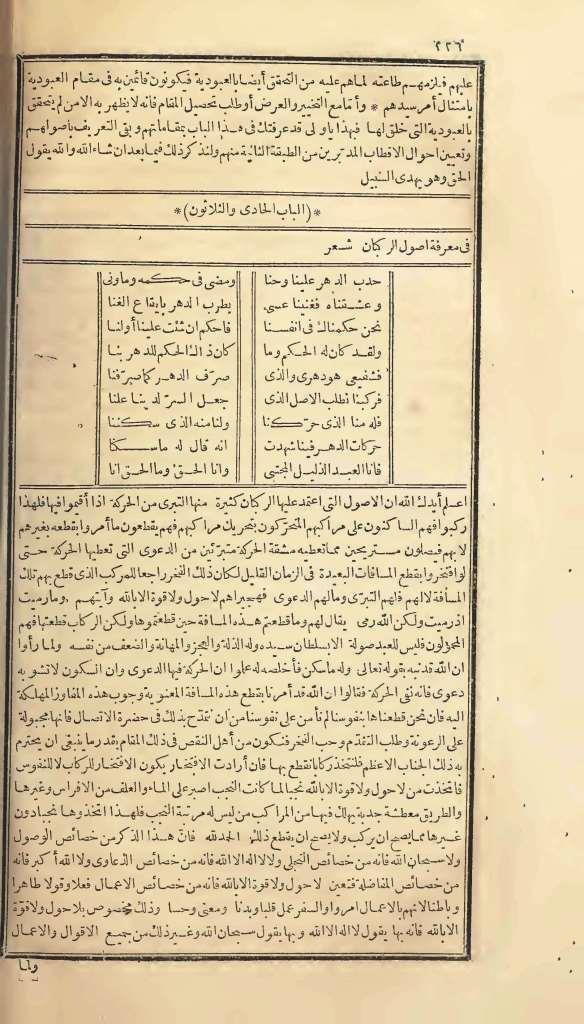 ٢٢٦
عليهم فيلزمهم طاعته لما هم عليه من التحقق أيضا بالعبودية فيكونون قائمين به فى مقام العبودية
بامتثال أمر سيدهم * وأما مع التخيير والعرض أو طلب تحصيل المقام فانه لا يظهر به الا من لم يتحقق
بالعبودية التى خلق لها فهذا يا ولى قد عرفتك فى هذا الباب بمقاماتهم وبقى التعريف باصولهم
وتعيين احوال الاقطاب المدبرين من الطبقة الثانية منهم ولنذكر ذلك فيما بعد ان شاء الله والله يقول
الحق وهو يهدى السبيل
*(الباب الحادى والثلاثون)*
فى معرفة اصول الركبان شعر
حدب الدهر علينا وحنا ومضى فى حكمه وماونى
وعشقناه فغنينا عسى يطرب الدهر بايقاع الغنا
نحن حكمناك فى انفسنا فاحكم ان شئت علينا أو لنا
ولقد كان له الحكم وما كان ذاك الحكم للدهر بنا
فشفيعى هو دهرى والذى صرف الدهر كما صرفنا
فركبنا نطلب الاصل الذى جعل السر لدينا علنا
فله منا الذى حركنا ولنا منه الذى سكننا
حركات الدهر فينا شهدت انه قال له ما سكنا
فانا العبد الذليل المجتبى وانا الحق وما الحق انا
اعلم أيدك الله ان الاصول التى اعتمد عليها الركبان كثيرة منها التبرى من الحركة اذا أقيموا فيها فلهذا
ركبوا فهم الساكنون على مراكبهم المتحركون بتحريك مراكبهم فهم يقطعون ما أمروا بقطعه بغيرهم
لا بهم فيصلون مستريحين مما تعطيه مشقة الحركة متبرئين من الدعوى التى تعطيها الحركة حتى
لو افتخروا بقطع المسافات البعيدة فى الزمان القليل لكان ذلك الفخر راجعا للمركب الذى قطع بهم تلك
المسافة لا لهم فلهم التبرى وما لهم الدعوى فهجيراهم لا حول ولا قوة الا بالله وآيتهم وما رميت
اذ رميت ولكن الله رمى يقال لهم وما قطعتم هذه المسافة حين قطعتموها ولكن الركاب قطعتها فهم
المحمولون فليس للعبد صولة الا بسلطان سيده وله الذلة والعجز والمهانة والضعف من نفسه ولما رأوا
ان الله قد نبه بقوله تعالى وله ما سكن فأخلصه له علموا ان الحركة فيها الدعوى وان السكون لا تشوبه
دعوى فانه نفى الحركة فقالوا ان الله قد أمرنا بقطع هذه المسافة المعنوية وجوب هذه المفاوز المهلكة
اليه فان نحن قطعناها بنفوسنا لم نأمن على نفوسنا من ان نتمدح بذلك فى حضرة الاتصال فانها مجبولة
على الرعونة وطلب التقدم وحب الفخر فنكون من أهل النقص فى ذلك المقام بقدر ما ينبغى ان يحترم
به ذلك الجناب الاعظم فلنتخذ ركابا نقطع بها فان أرادت الافتخار يكون الافتخار للركاب لا للنفوس
فاتخذت من لا حول ولا قوة الا بالله نجبا لما كانت النجب اصبر على الماء والعلف من الافراس وغيرها
والطريق معطشة جدبة يهلك فيها من المراكب من ليس له مرتبة النجب فلهذا اتخذوها نجبا دون
غيرها مما يصح ان يركب ولا يصح ان يقطع ذلك الحمد لله فان هذا الذكر من خصائص الوصول
ولا سبحان الله فانه من خصائص التجلى ولا لا اله الا الله فانه من خصائص الدعاوى ولا الله أكبر فانه
من خصائص المفاضلة فتعين لا حول ولا قوة الا بالله فانه من خصائص الاعمال فعلا وقولا ظاهرا
وباطنا لانهم بالاعمال امروا والسفر عمل قلبا وبدنا ومعنى وحسا وذلك مخصوص بلا حول ولا قوة
الا بالله فانه بها يقول لا اله الا الله وبها يقول سبحان الله وغير ذلك من جميع الاقوال والاعمال
ولما